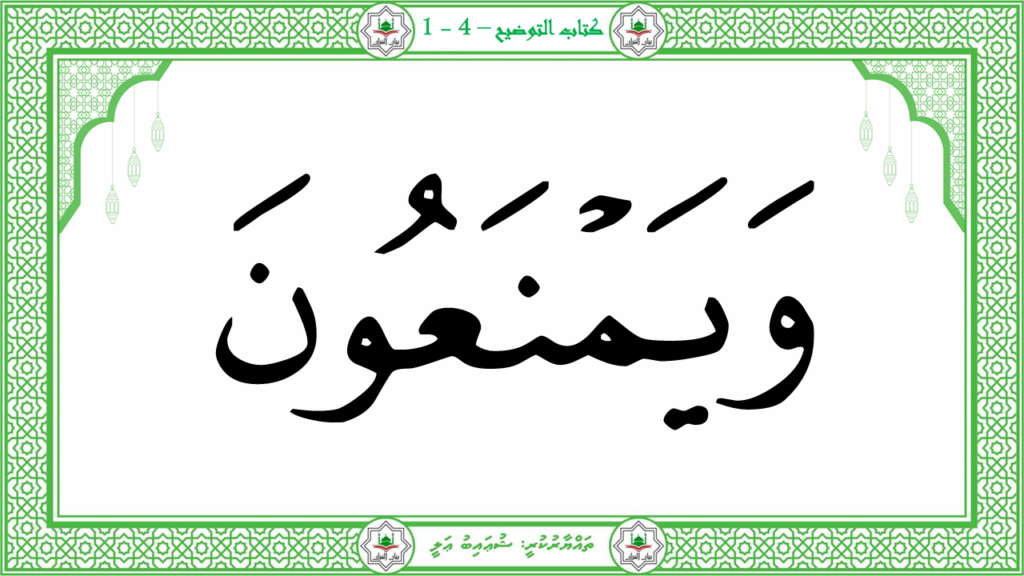 كتاب التوضيح – 4 - 1
وَيَمْنَعُونَ
ތައްޔާރުކުރީ: ޝުޢައިބު ޢަލީ